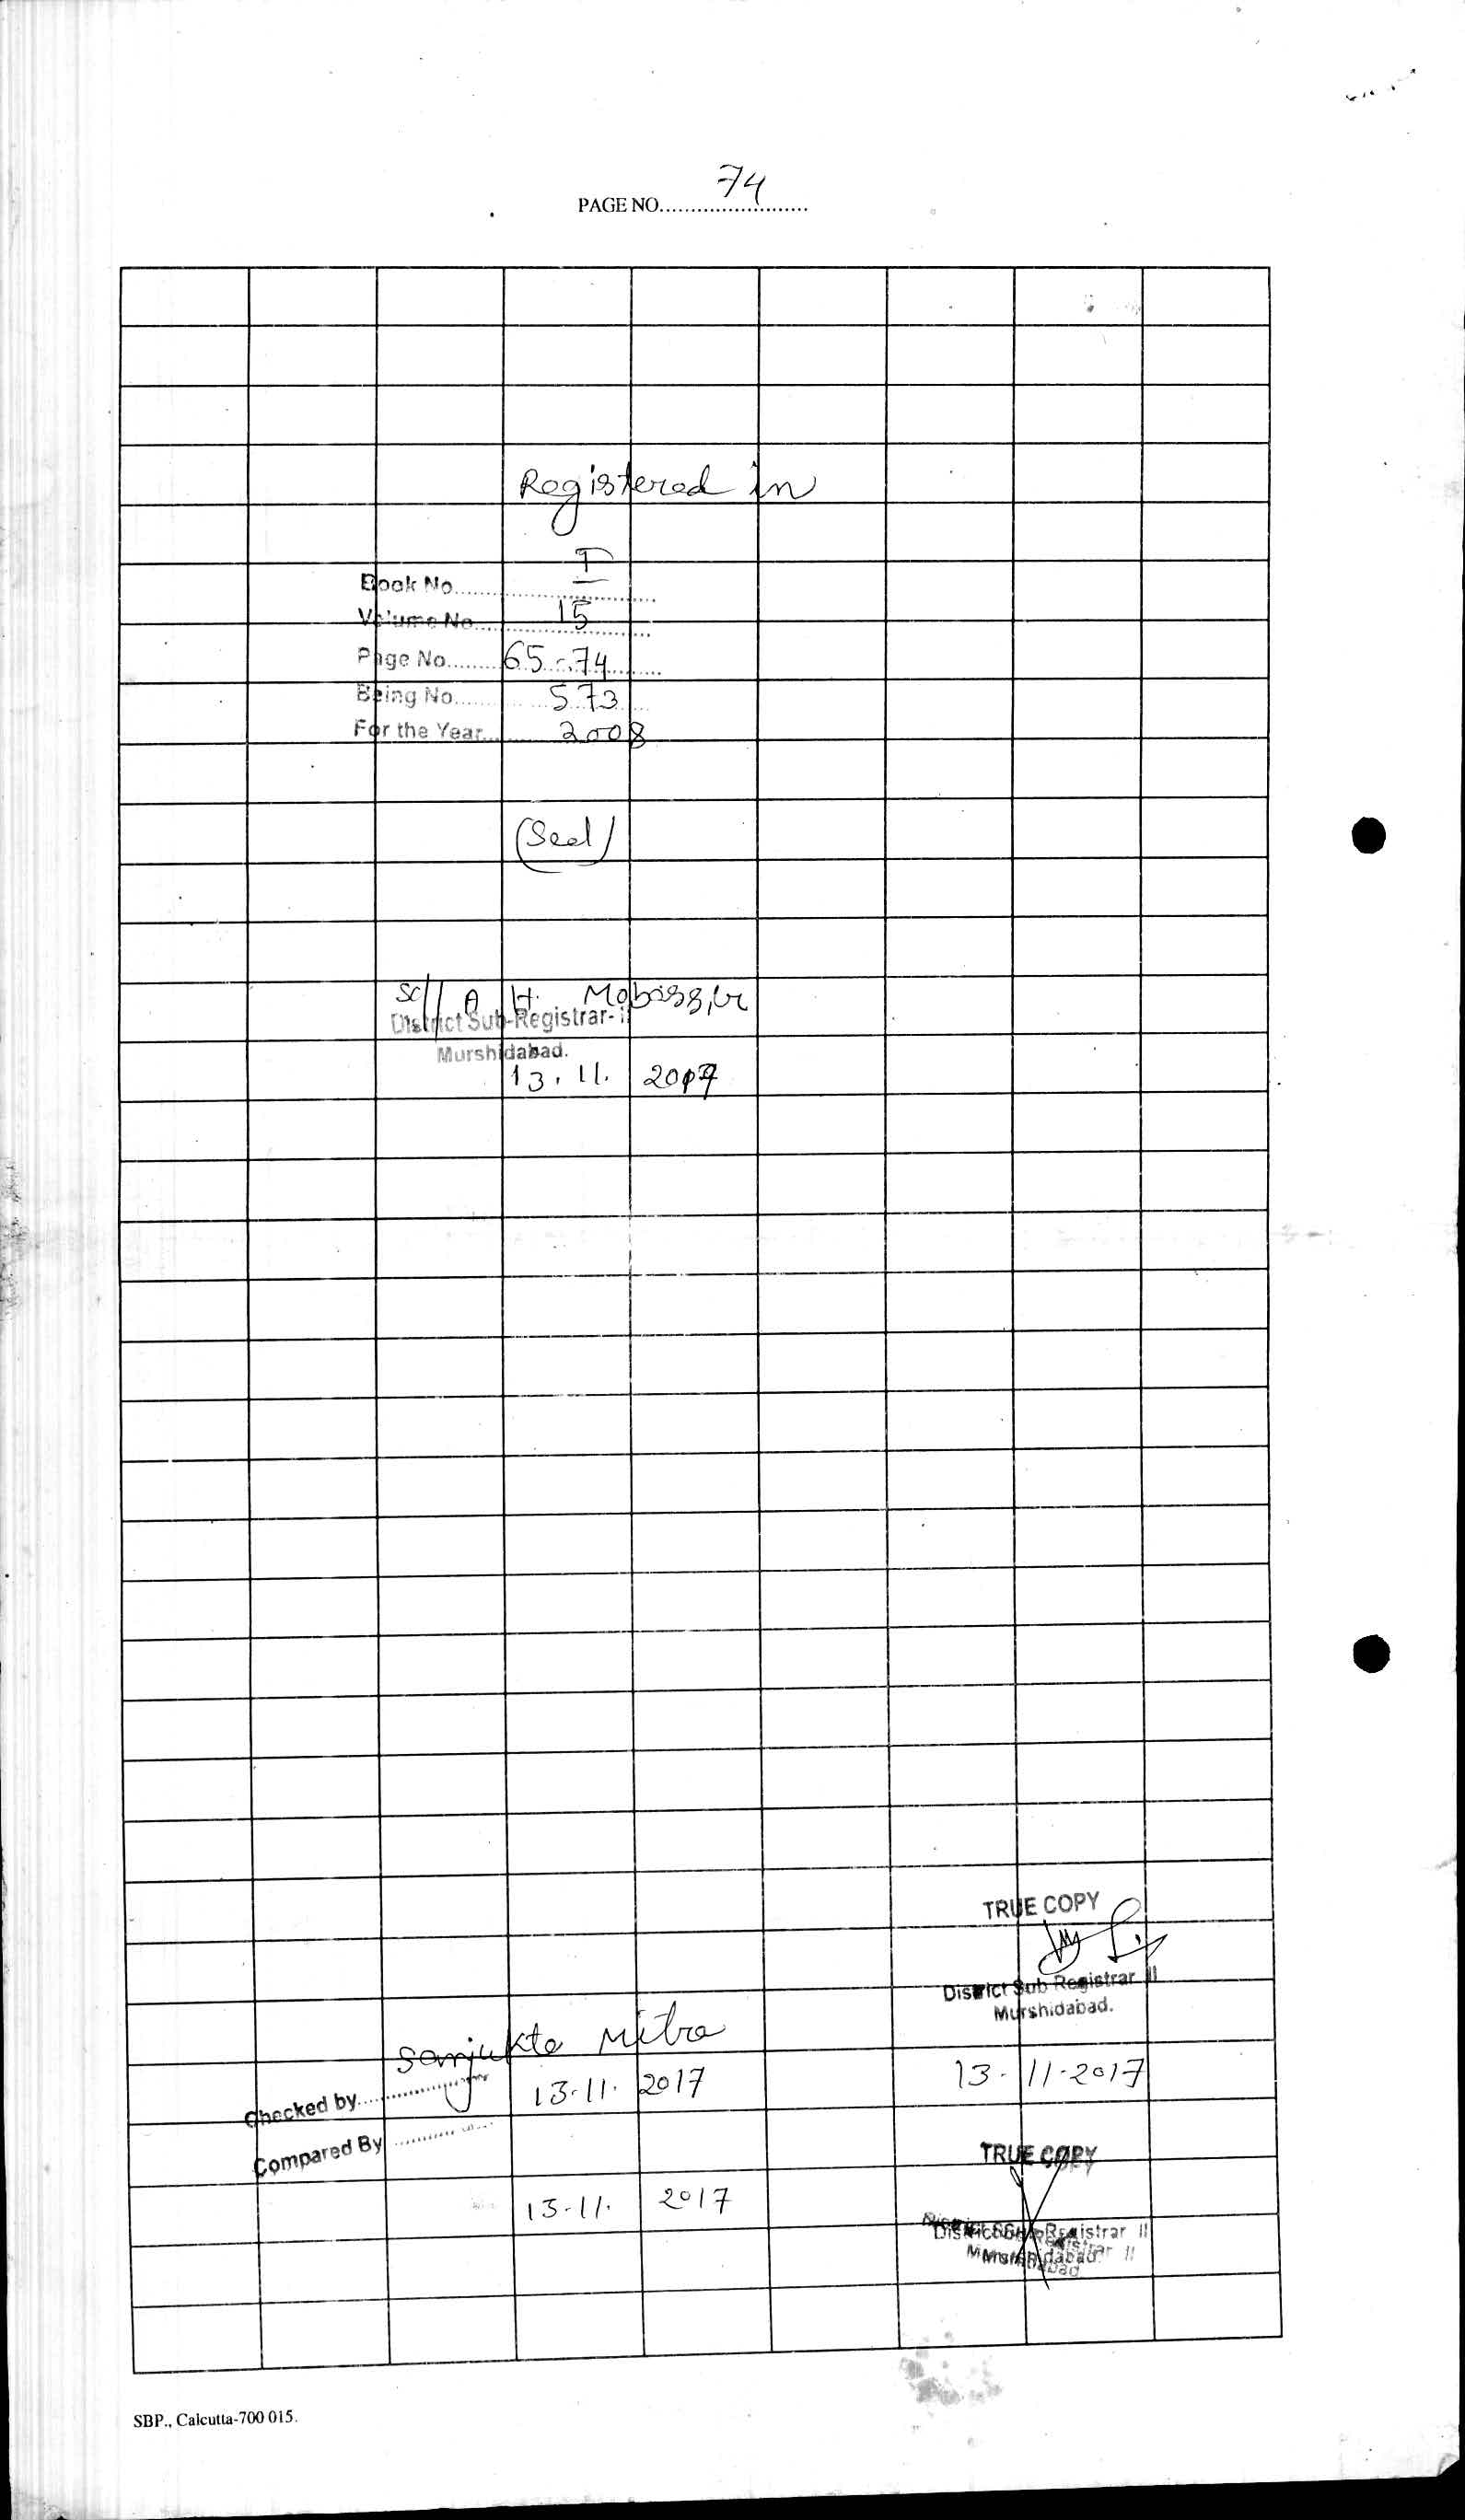 PAGE NO........................ 74
Registered in
Book No.................... I
Volume No.................... 15
Page No......... 65-74
Being No......... 573
For the Year......... 2008
(Seal)
Sd/ A H. Mobassir
District Sub-Registrar-II
Murshidabad.
13. 11. 2017
TRUE COPY
District Sub Registrar II
Murshidabad.
13-11-2017
Sanjukta Mitra
Checked by..................... 13-11. 2017
Compared By ....................
13-11. 2017
TRUE COPY
District Sub Registrar II
Murshidabad
SBP., Calcutta-700 015.